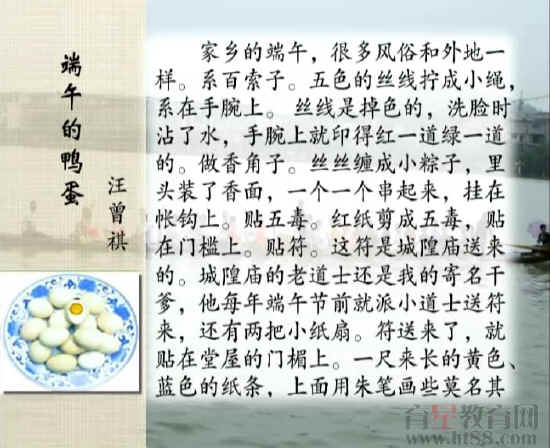 端午的鸭蛋
汪曾祺
家乡的端午，很多风俗和外地一
样。系百索子。五色的丝线拧成小绳，
系在手腕上。 丝线是掉色的，洗脸时
沾了水，手腕上就印得红一道绿一道
的。做香角子。丝丝缠成小粽子，里
头装了香面，一个一个串起来，挂在
帐钩上。贴五毒。红纸剪成五毒，贴
在门槛上。贴符。这符是城隍庙送来
的。城隍庙的老道士还是我的寄名干
爹，他每年端午节前就派小道士送符
来，还有两把小纸扇。符送来了，就
贴在堂屋的门楣上。一尺来长的黄色、
蓝色的纸条，上面用朱笔画些莫名其
育星教育网
www.ht88.com